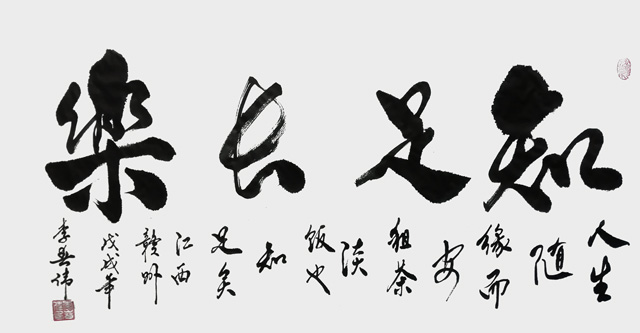 知足长樂
人生
随
緣而
安
粗茶
淡
饭也
知
足矣
江西
赣州
戊戌年
李 伟